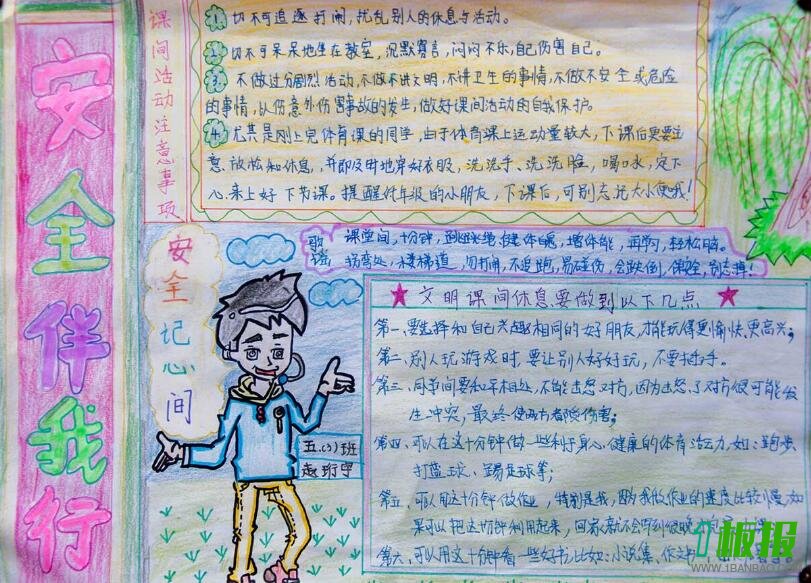 安全伴我行
课间活动注意事项
1. 切不可追逐打闹,扰乱别人的休息与活动。
2. 切不可呆呆地坐在教室,沉默寡言,闷闷不乐,自己伤害自己。
3. 不做过分剧烈活动,不做不讲文明,不讲卫生的事情,不做不安全或危险
的事情,以伤意外伤害事故的发生,做好课间活动的自我保护。
4. 尤其是刚上完体育课的同学,由于体育课上运动量较大,下课后更要注
意,放松和休息,并即及时地穿好衣服,洗洗手、洗洗脸,喝口水,定下
心来上好下节课。提醒低年级的小朋友,下课后,可别忘记大小便哦!
歌谣
课堂间,十分钟,跳跳绳,健体魄,增体能,再学习,轻松郎。
拐弯处,楼梯道,勿打闹,不追跑,易碰伤,会跌倒,保险,别忘掉!
安全记心间
文明课间休息要做到以下几点
第一、要选择和自己兴趣相同的好朋友,才能玩得更愉快、更高兴;
第二、别人玩游戏时,要让别人好好玩,不要插手。
第三、同学间要和平相处,不能击怒对方,因为击怒了对方便可能发
生冲突,最终使两方都受伤害;
第四、可以在这十分钟做一些利于身心健康的体育活动,如:跑步、
打篮球、踢足球等;
第五、可以用这十分钟做作业,特别是我,因为我做作业的速度比较慢,如
果可以把这十分钟利用起来,回家就不会
第六、可以用这十分钟看一些好书,比如:小说集、作文
五.(3)班
赵珩宇
板报
WWW.1BANBAO.COM